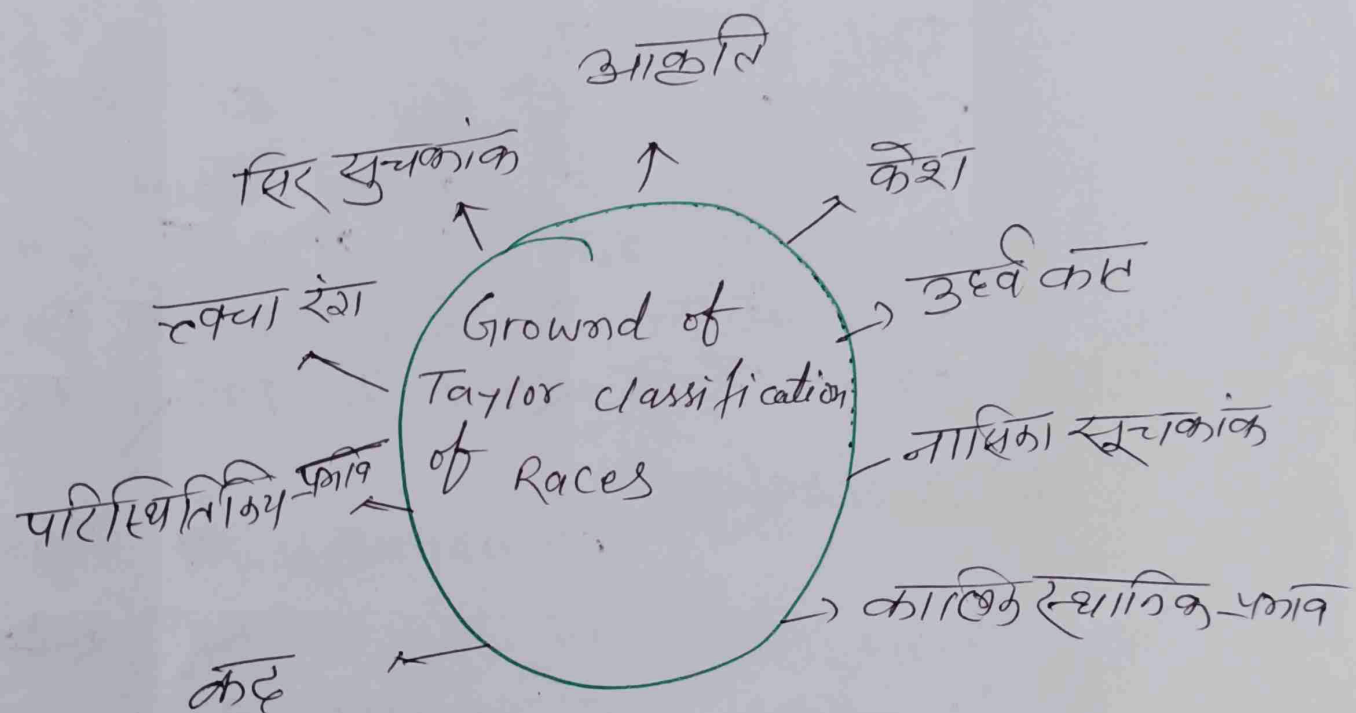 आकृति
सिर सुचकांक
केश
त्वचा रंग
उर्ध्व काट
Ground of
Taylor classification
of Races
नासिका सूचकांक
परिस्थितिकिय प्रभाव
कालिक स्थानिक प्रभाव
कद